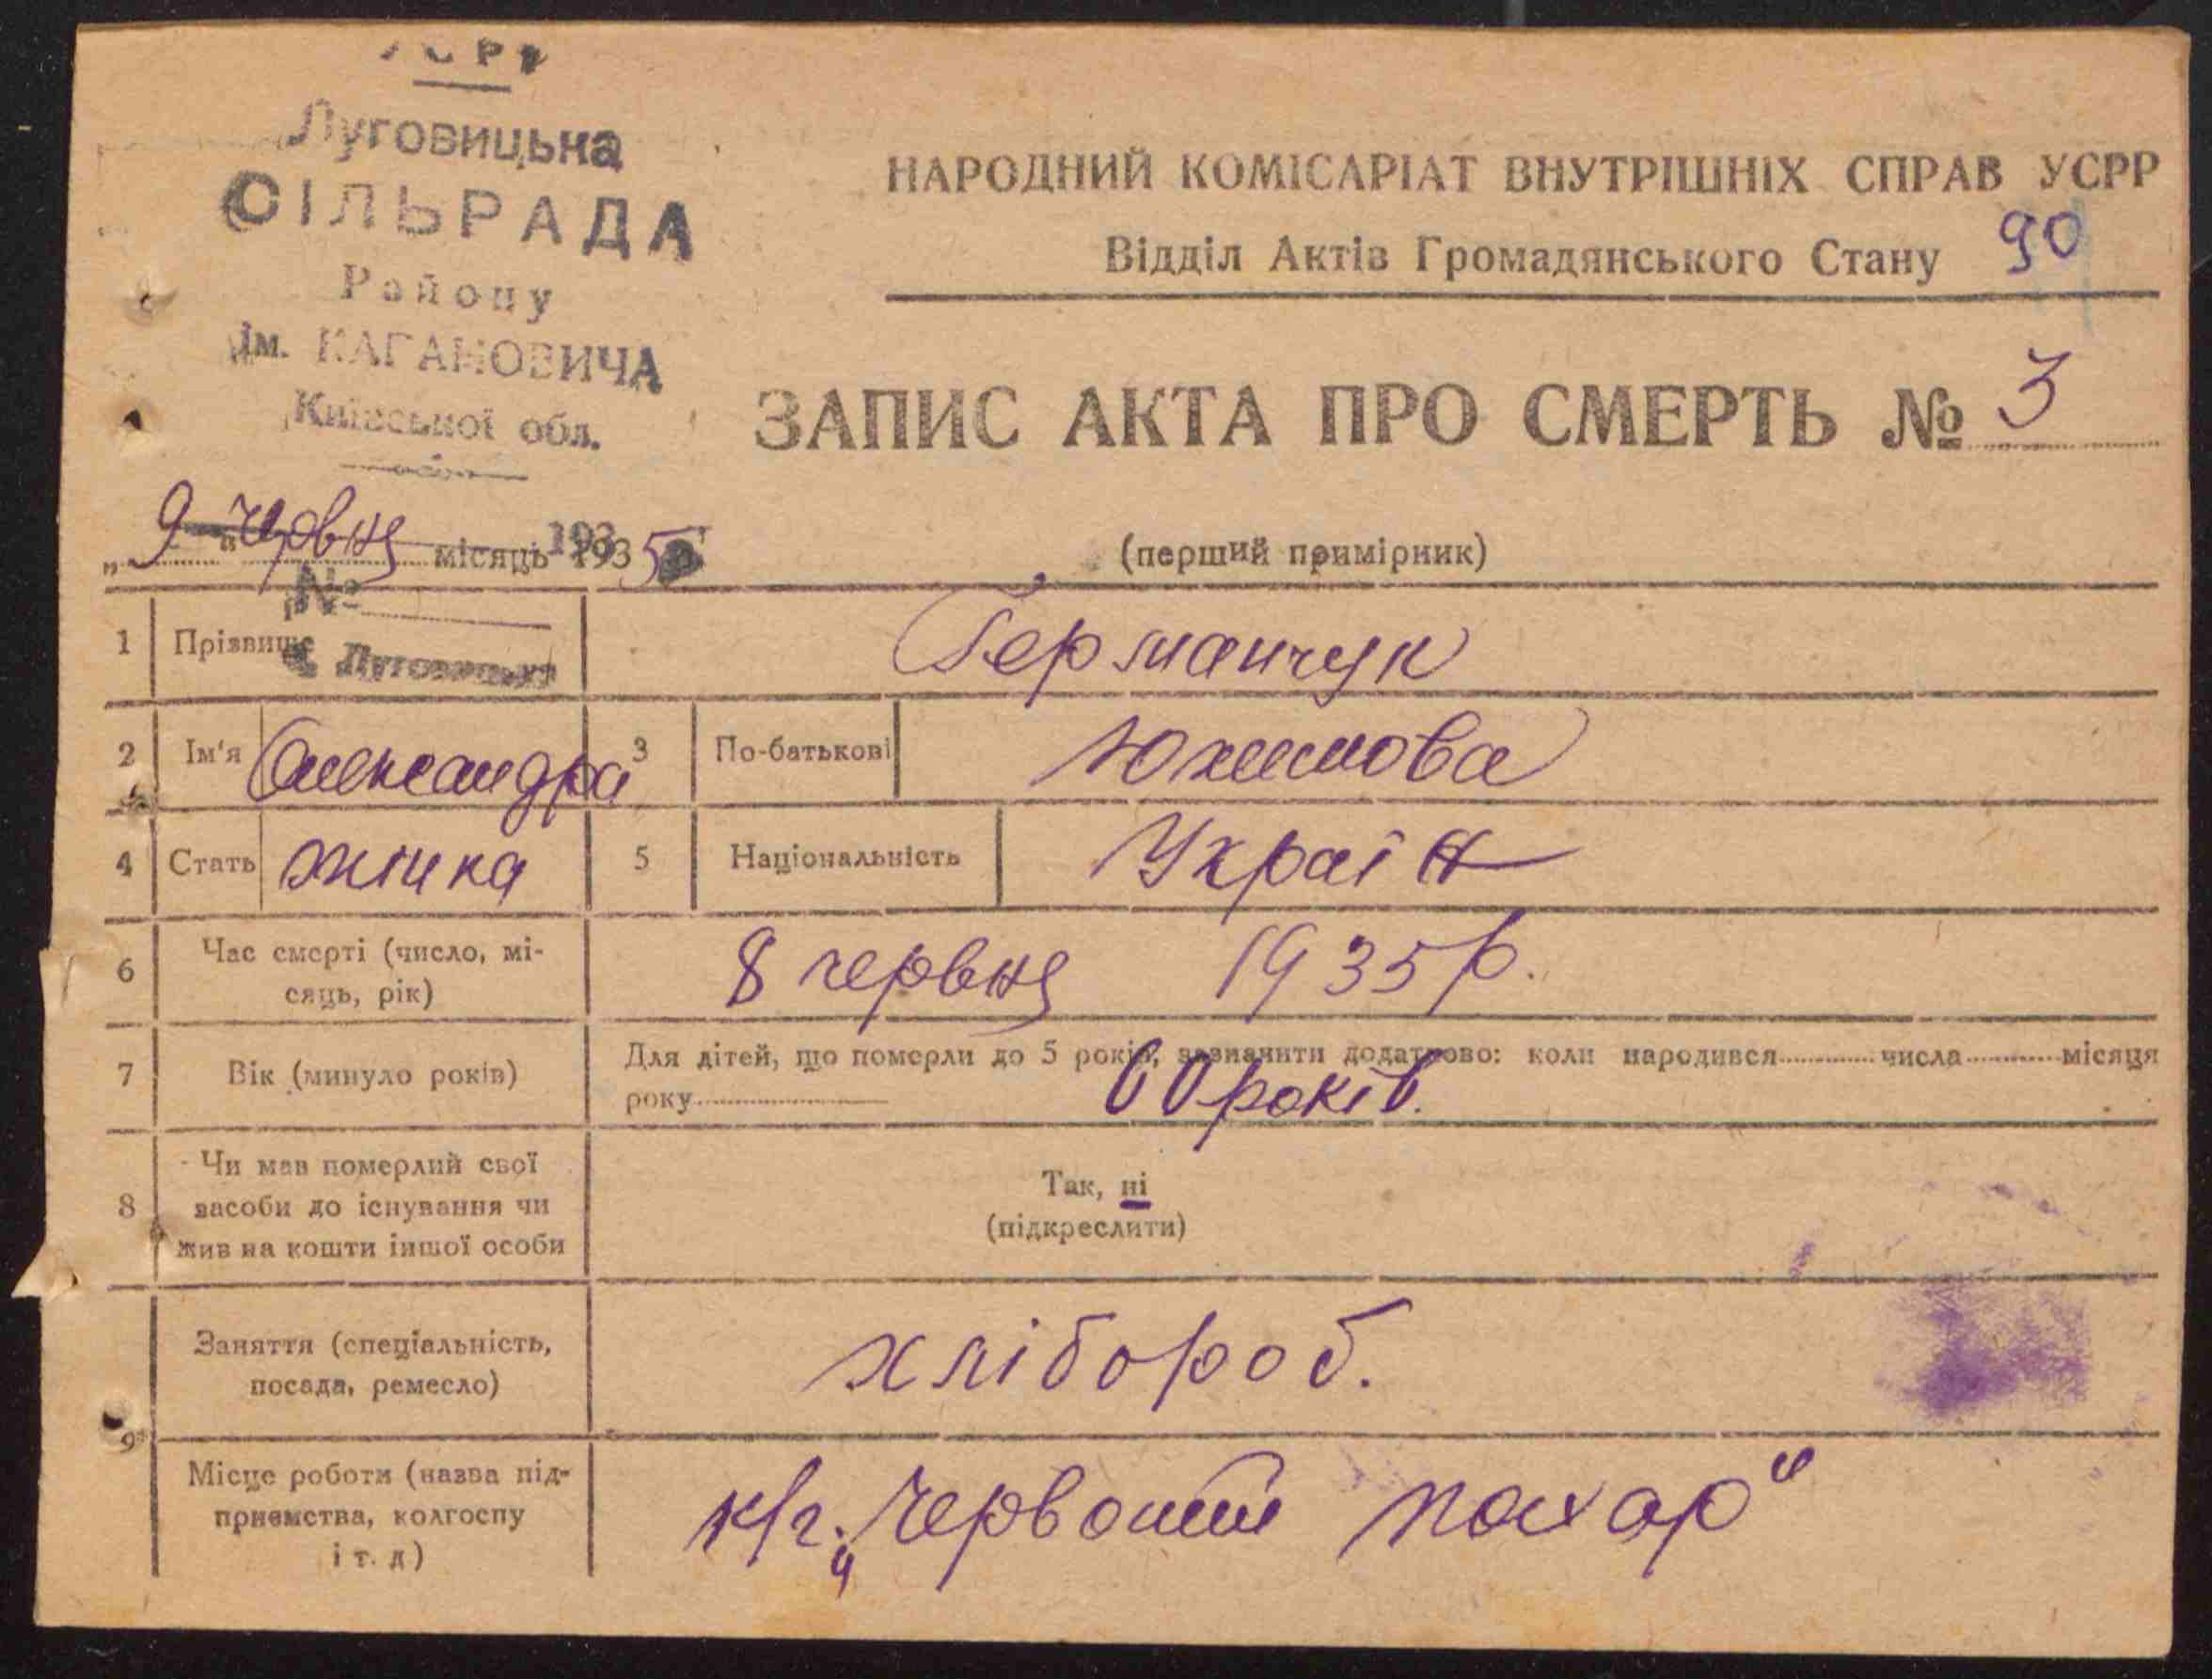 УСРР
Луговицька
СІЛЬРАДА
Району
ім. КАГАНОВИЧА
Київської обл.
НАРОДНИЙ КОМІСАРІАТ ВНУТРІШНІХ СПРАВ УСРР
Відділ Актів Громадянського Стану 90
ЗАПИС АКТА ПРО СМЕРТЬ № 3
„ 9 " червня місяць 1935
(перший примірник)
№
1 Прізвище Германчук
с. Луговицька
2 Ім'я Олександра 3 По-батькові Юхимова
4 Стать жінка 5 Національність Україн
6 Час смерті (число, мі-
сяць, рік) 8 червня 1935 р.
7 Вік (минуло років) Для дітей, що померли до 5 років, зазначити додатково: коли народився числа місяця
року 60 років.
8 Чи мав померлий свої
засоби до існування чи
жив на кошти іншої особи
Так, ні
(підкреслити)
9 Заняття (спеціальність,
посада, ремесло) хлібороб.
Місце роботи (назва під-
приємства, колгоспу
і т. д) к/г. „Червоний пахар"